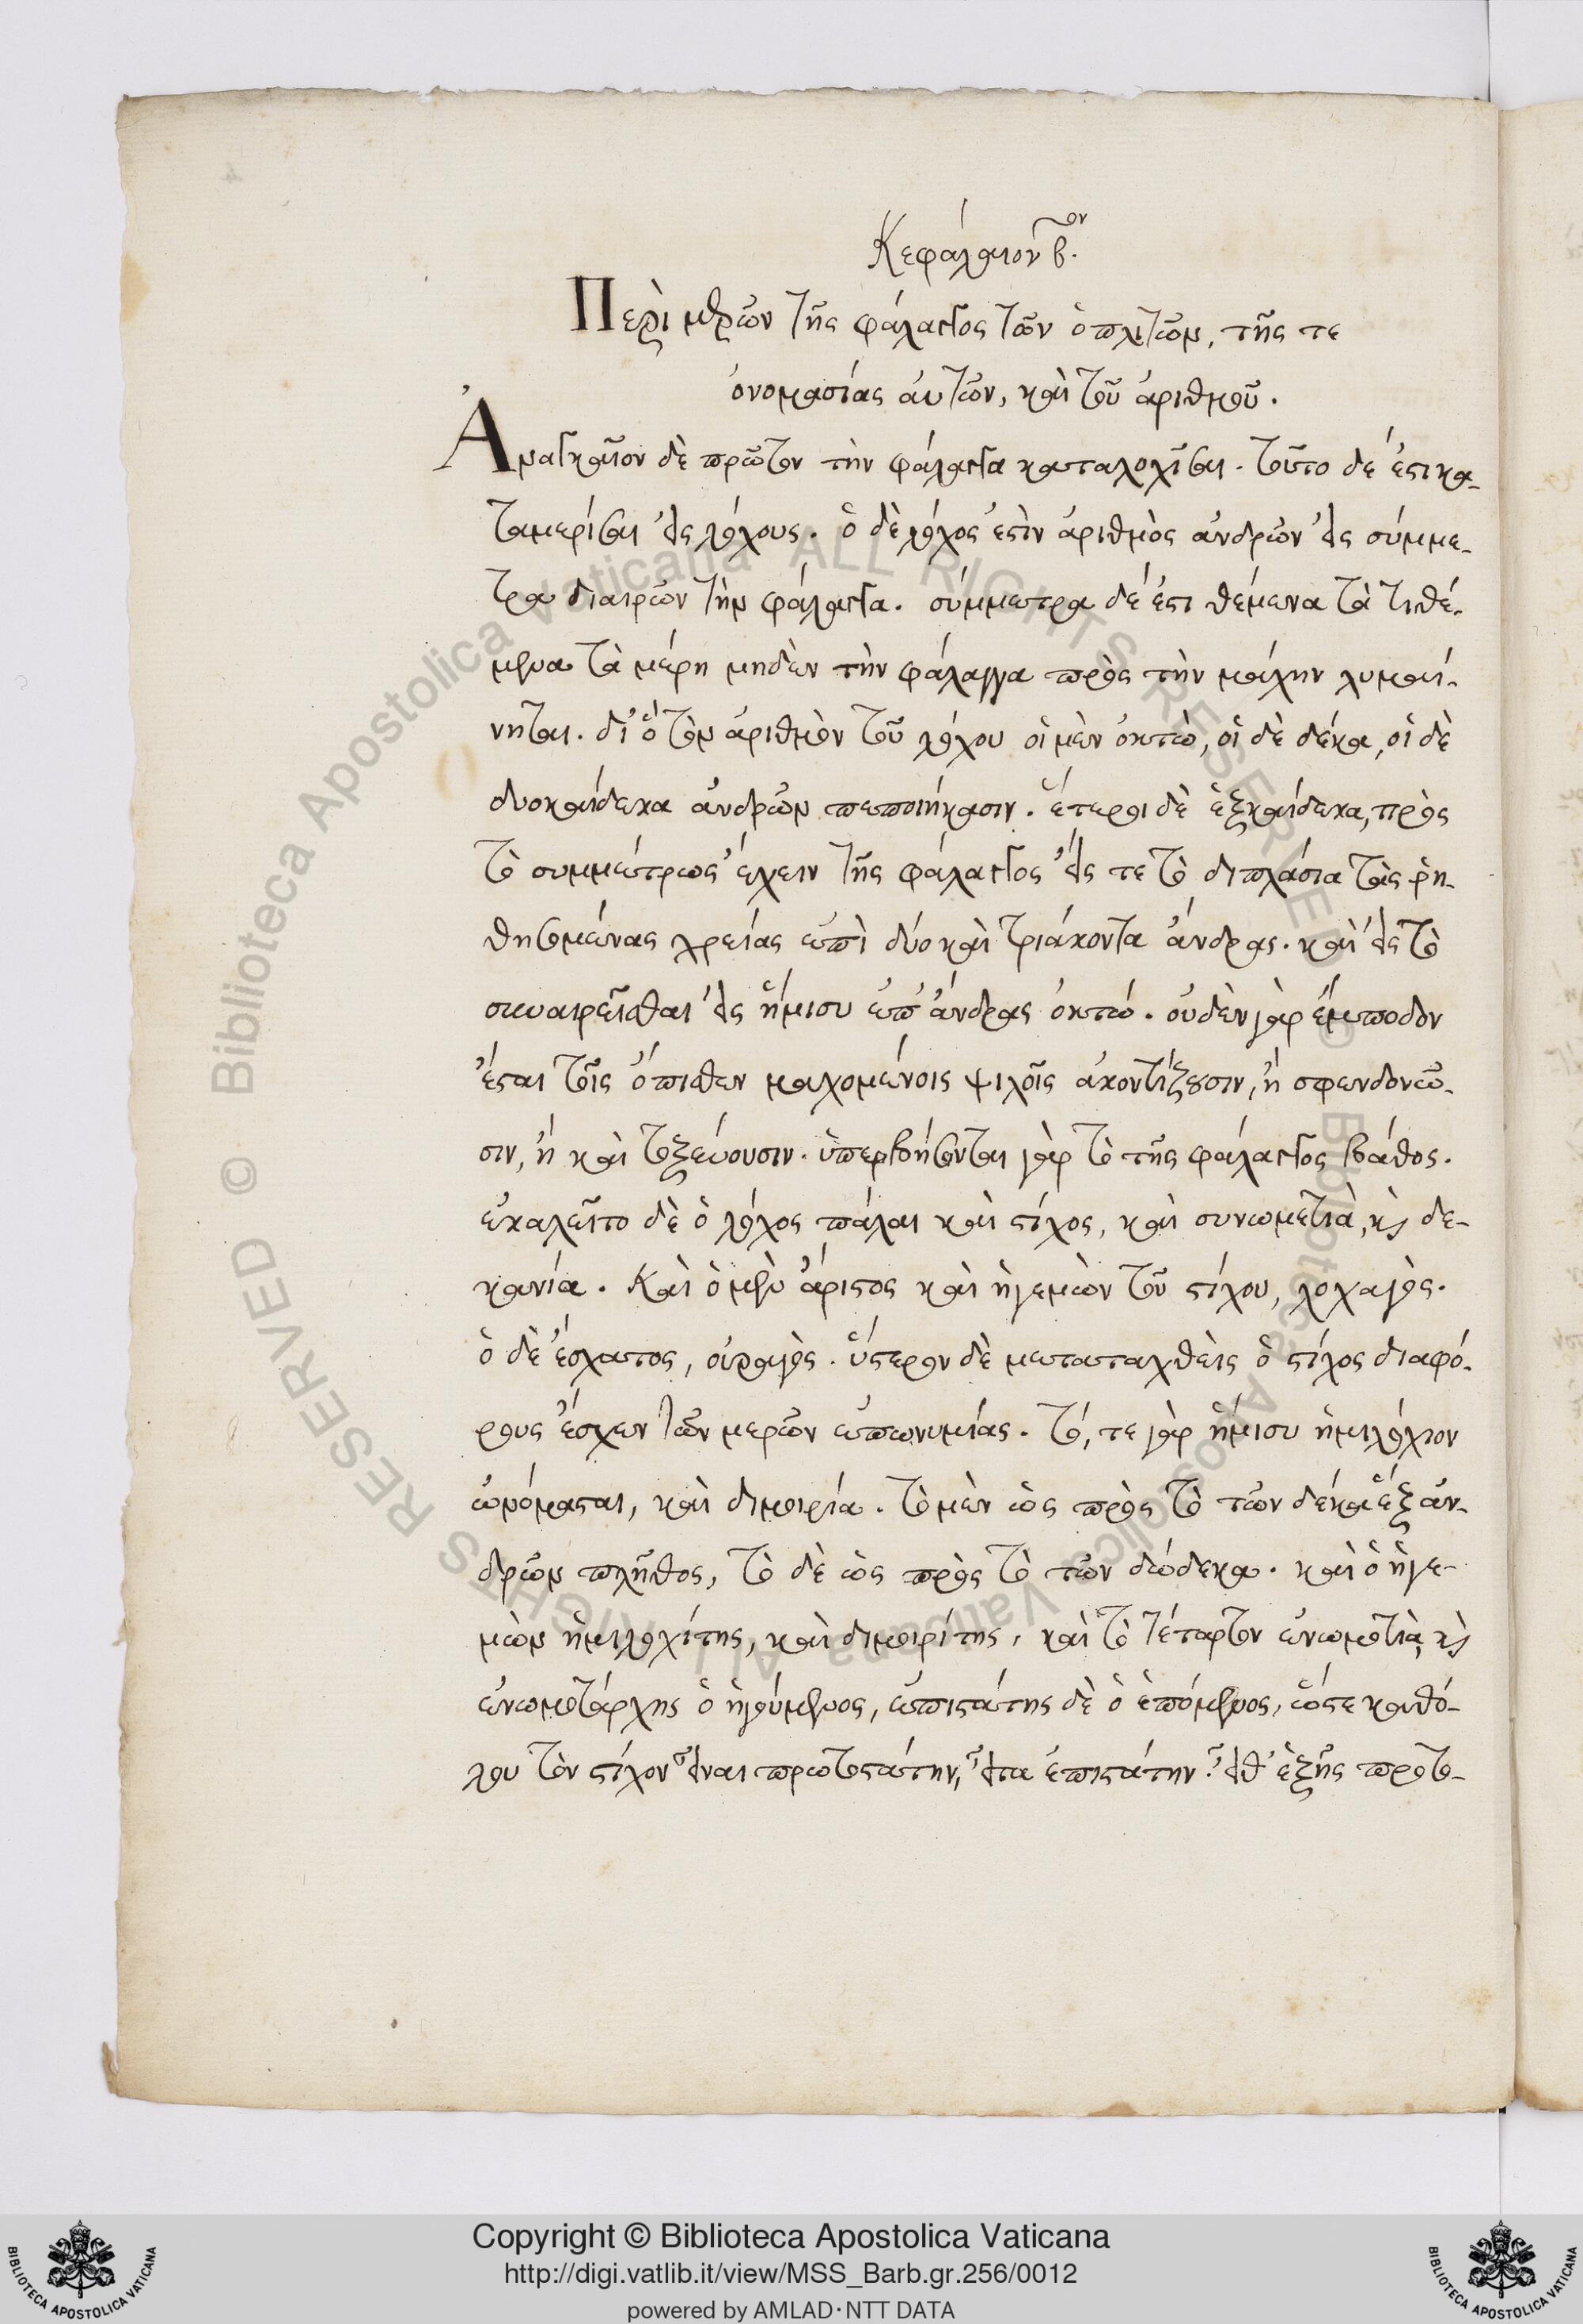 Κεφάλαιον βον.
Περὶ μερῶν τῆς φάλαγγος τῶν ὁπλιτῶν, τῆς τε
ὀνομασίας ἀυτῶν, καὶ τοῦ ἀριθμοῦ.
Ἀναγκαῖον δὲ πρῶτον τὴν φάλαγγα καταλοχῖσαι. τοῦτο δέ ἐστι κα-
ταμερίσαι εἰς λόχους. ὁ δὲ λόχος ἐστὶν ἀριθμὸς ἀνδρῶν εἰς σύμμε-
τρα διαιρῶν τὴν φάλαγγα. σύμμετρα δέ ἐστι θέμενα τὰ τιθέ-
μενα τὰ μέρη μηδὲν τὴν φάλαγγα πρὸς τὴν μάχην λυμαί-
νηται. δι' ὅ τὸν ἀριθμὸν τοῦ λόχου οἱ μὲν ὀκτὼ, οἱ δὲ δέκα, οἱ δὲ
δυοκαίδεκα ἀνδρῶν πεποιήκασιν. ἕτεροι δὲ ἑξκαίδεκα, πρὸς
τὸ συμμέτρως ἔχειν τῆς φάλαγγος εἴς τε τὸ διπλάσια τὰς ῥη-
θησομένας χρείας ἐπὶ δύο καὶ τριάκοντα ἄνδρας. καὶ εἰς τὸ
συναιρεῖσθαι εἰς ἥμισυ ἐπ' ἄνδρας ὀκτώ. οὐδὲν γὰρ ἐμποδὸν
ἔσται τοῖς ὄπισθεν μαχομένοις ψιλοῖς ἀκοντίζουσιν, ἢ σφενδονῶ-
σιν, ἢ καὶ τοξεύουσιν. ὑπερβήσονται γὰρ τὸ τῆς φάλαγγος βάθος.
ἐκαλεῖτο δὲ ὁ λόχος πάλαι καὶ στίχος, καὶ συνωμετιὰ, κὶ δε-
κανία. Καὶ ὁ μὲν ἄριστος καὶ ἡγεμὼν τοῦ στίχου, λοχαγὸς.
ὁ δὲ ἔσχατος, οὐραγὸς. ὕστερον δὲ μεταταχθεὶς ὁ στίχος διαφό-
ρους ἔσχεν τῶν μερῶν ἐπωνυμίας. τό, τε γὰρ ἥμισυ ἡμιλόχιον
ὠνόμασται, καὶ διμοιρία. τὸ μὲν ὡς πρὸς τὸ τῶν δέκα ἕξ ἀν-
δρῶν πλῆθος, τὸ δὲ ὡς πρὸς τὸ τῶν δώδεκα. καὶ ὁ ἡγε-
μὼν ἡμιλοχίτης, καὶ διμοιρίτης, καὶ τὸ τέταρτον ἐνωμοτιὰ, κὶ
ἐνωμοτάρχης ὁ ἡγούμενος, ἐπιστάτης δὲ ὁ ἑπόμενος, ὥστε καθό-
λου τὸν στίχον εἶναι πρωτοστάτην, εἶτα ἐπιστάτην. εἶθ' ἑξῆς πρωτο-
Copyright © Biblioteca Apostolica Vaticana
http://digi.vatlib.it/view/MSS_Barb.gr.256/0012
powered by AMLAD·NTT DATA